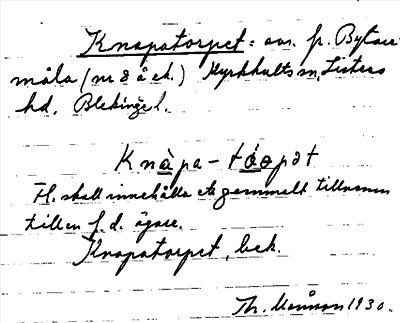 Knapatorpet: avs. fr. Bytare-
måla (nr 8 å ek.) Kyrkhults sn, Listers
hd. Blekinge l.
Knàpa-tá̱o̱pət
Fl. skall innehålla ett gammalt tillnamn
till en f.d. ägare.
Knapatorpet, bek.
Th. 1930.